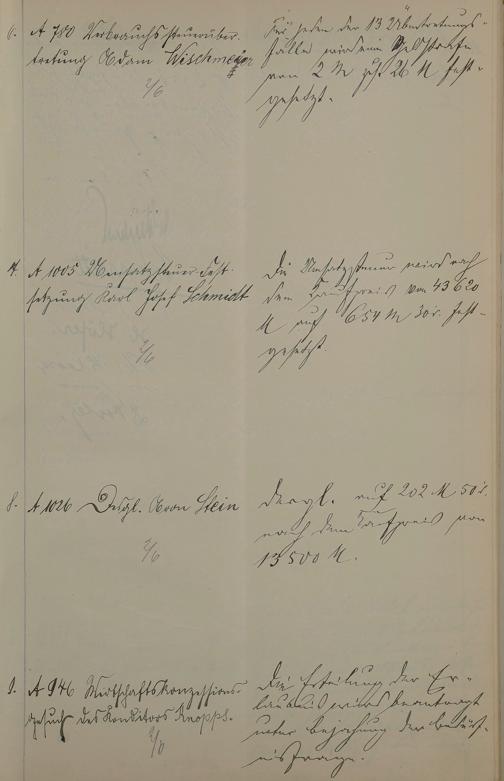 6. A 780 Verbrauchssteuerüber-
tretung Adam Wischmeyer
2/6
Für jeden der 13 Übertretungs-
fälle wird eine Geldstrafe
von 2 M zus. 26 M fest-
gesetzt.
7. A 1005 Umsatzsteuer Fest-
setzung Karl Josef Schmidt
2/6
Die Umsatzsteuer wird nach
dem Kaufpreis von 43620
M auf 654 M 30 fest-
gesetzt.
8. A 1026 Desgl. Aron Stein
2/6
desgl. auf 202 M 50
nach dem Kaufpreis von
13500 M.
9. A 946 Wirtschaftskonzessions-
gesuch des Konditors Knopps.
2/6
Die Erteilung der Er-
laubnis wird beantragt
unter Bejahung der Bedürf-
nisfrage.